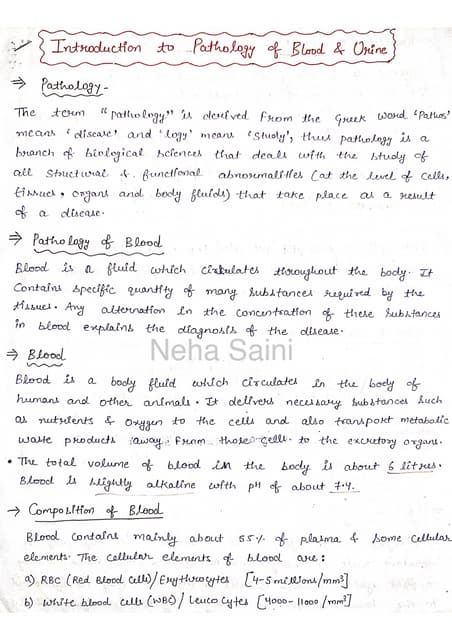 Introduction to Pathology of Blood & Urine
⇒ Pathology-
The term "pathology" is derived from the Greek word 'Pathos'
means 'disease' and 'logy' means 'Study', thus pathology is a
branch of biological sciences that deals with the study of
all structural & functional abnormalities (at the level of cells,
tissues, organs and body fluids) that take place as a result
of a disease.
⇒ Pathology of Blood
Blood is a fluid which circulates throughout the body. It
contains specific quantity of many substances required by the
tissues. Any alternation in the concentration of these substances
in blood explains the diagnosis of the disease.
Neha Saini
⇒ Blood
Blood is a body fluid which circulates in the body of
humans and other animals. It delivers necessary substances such
as nutrients & oxygen to the cells and also transport metabolic
waste products away from those cells. to the excretory organs.
• The total volume of blood in the body is about 6 litres.
Blood is slightly alkaline with pH of about 7.4.
→ Composition of Blood
Blood contains mainly about 55% of plasma & some cellular
elements. The cellular elements of blood are:
a) RBC (Red Blood Cells)/Erythrocytes [4-5 millions/mm³]
b) White blood cells (WBC)/Leucocytes [4000-11000/mm³]